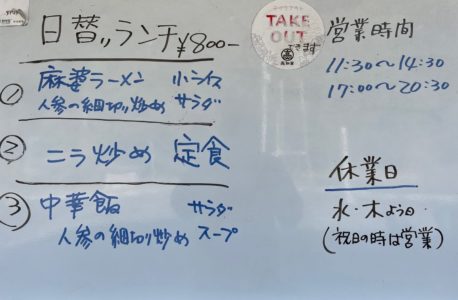 日替りランチ ¥800-
① 麻婆ラーメン 小ライス
人参の細切り炒め サラダ
② ニラ炒め 定食
③ 中華飯 サラダ
人参の細切り炒め スープ
テイクアウト
TAKE
OUT
できます
営業時間
11:30～14:30
17:00～20:30
休業日
水・木よう日
(祝日の時は営業)